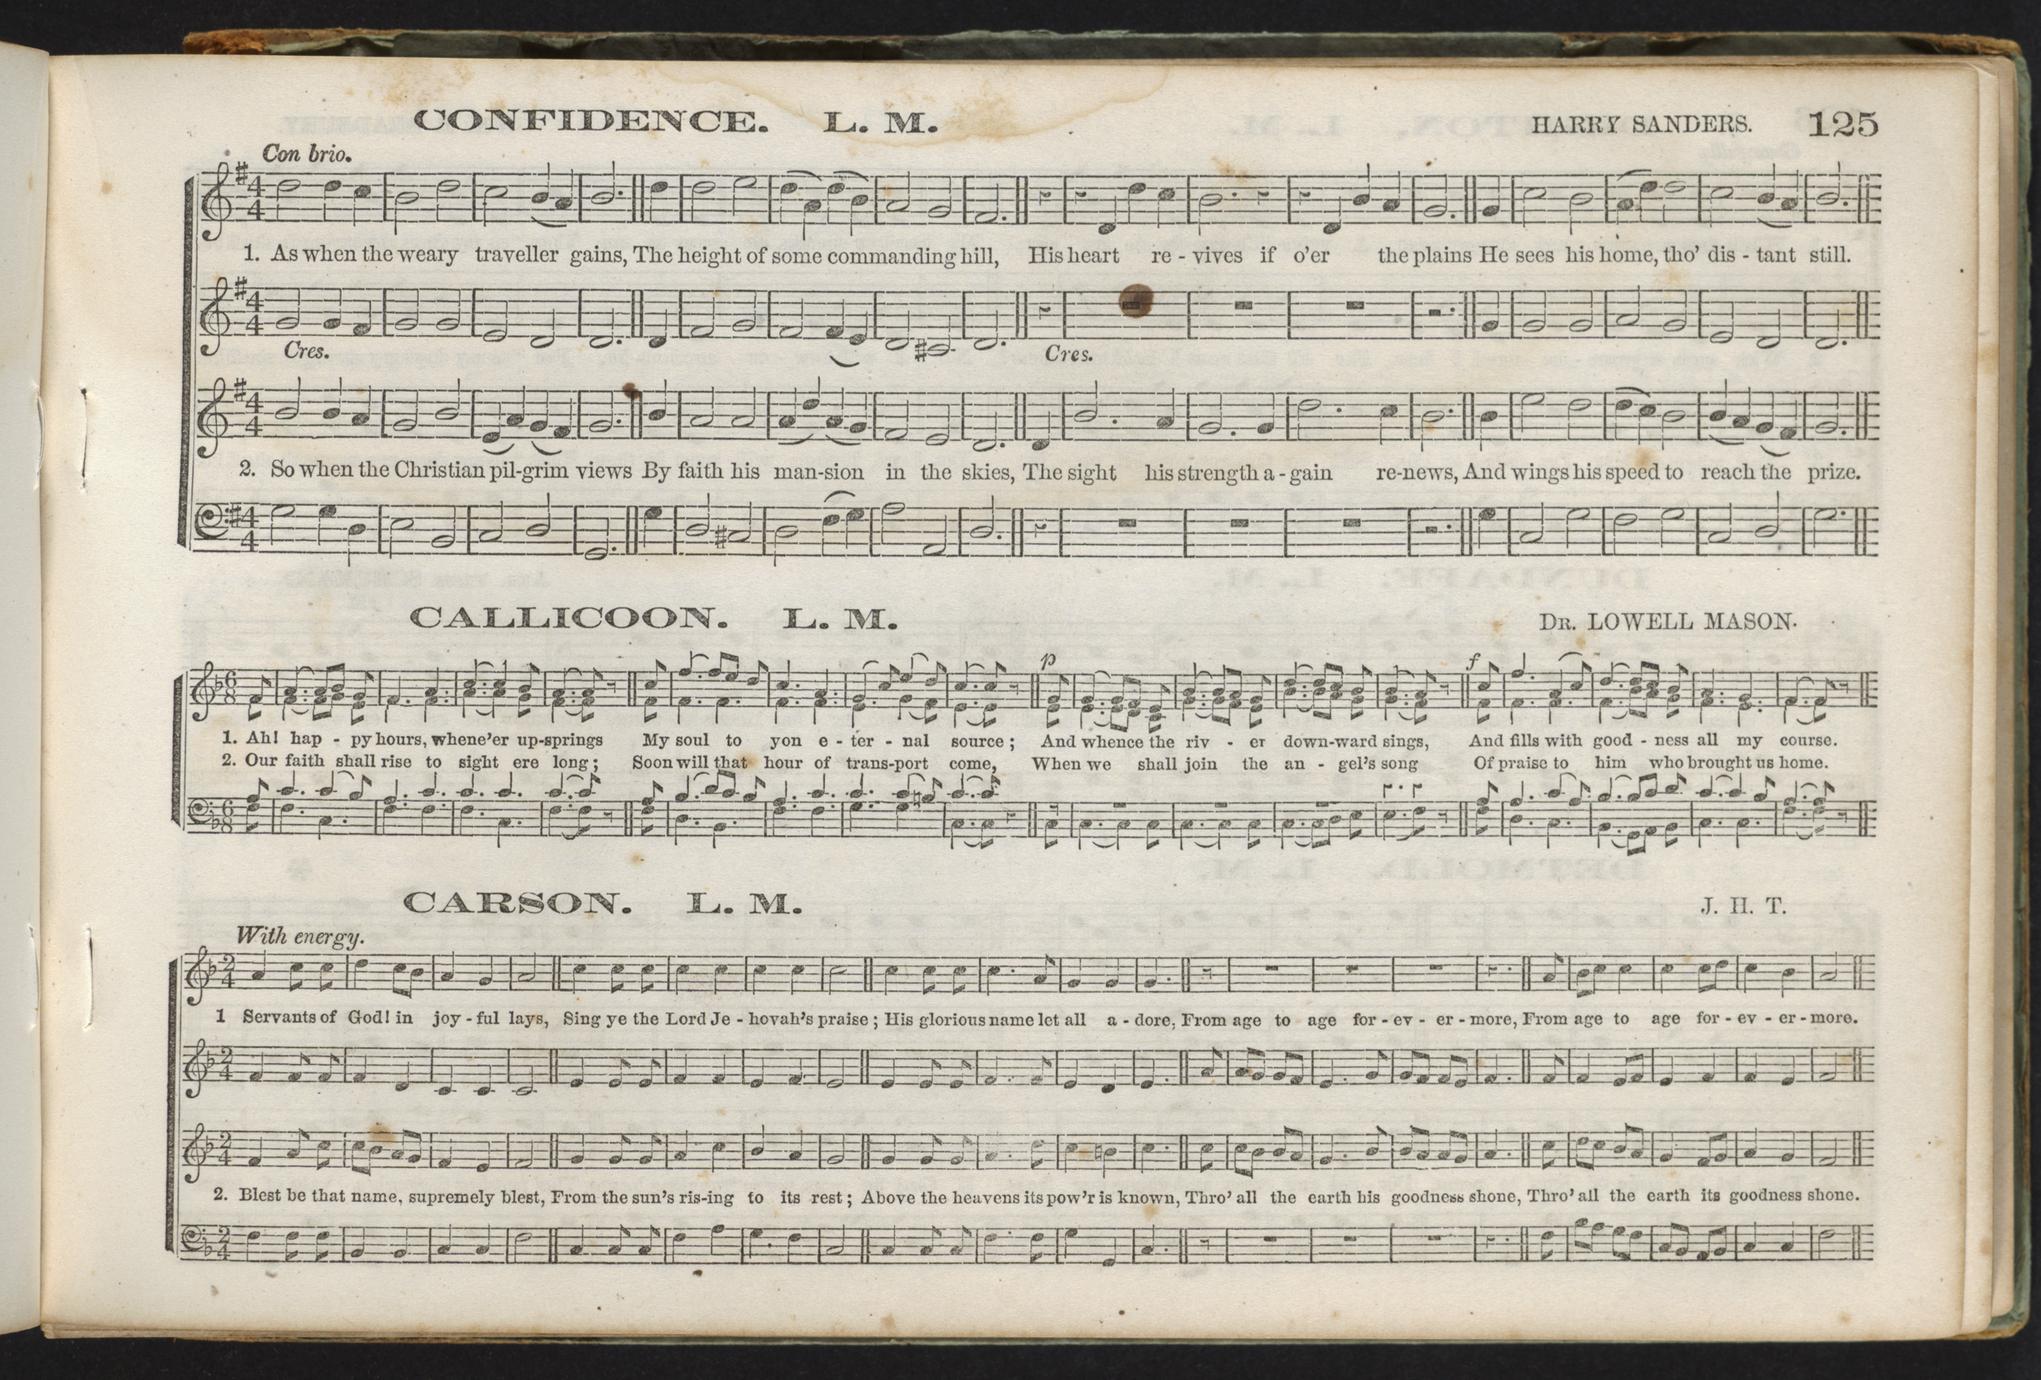 CONFIDENCE. L. M. HARRY SANDERS. 125
Con brio.
1. As when the weary traveller gains, The height of some commanding hill, His heart re - vives if o'er the plains He sees his home, tho' dis - tant still.
Cres. Cres.
2. So when the Christian pil-grim views By faith his man-sion in the skies, The sight his strength a - gain re-news, And wings his speed to reach the prize.
CALLICOON. L. M. DR. LOWELL MASON.
p f
1. Ah! hap - py hours, whene'er up-springs My soul to yon e - ter - nal source; And whence the riv - er down-ward sings, And fills with good - ness all my course.
2. Our faith shall rise to sight ere long; Soon will that hour of trans-port come, When we shall join the an - gel's song Of praise to him who brought us home.
CARSON. L. M. J. H. T.
With energy.
1 Servants of God! in joy - ful lays, Sing ye the Lord Je - hovah's praise; His glorious name let all a - dore, From age to age for - ev - er - more, From age to age for - ev - er - more.
2. Blest be that name, supremely blest, From the sun's ris-ing to its rest; Above the heavens its pow'r is known, Thro' all the earth his goodness shone, Thro' all the earth its goodness shone.